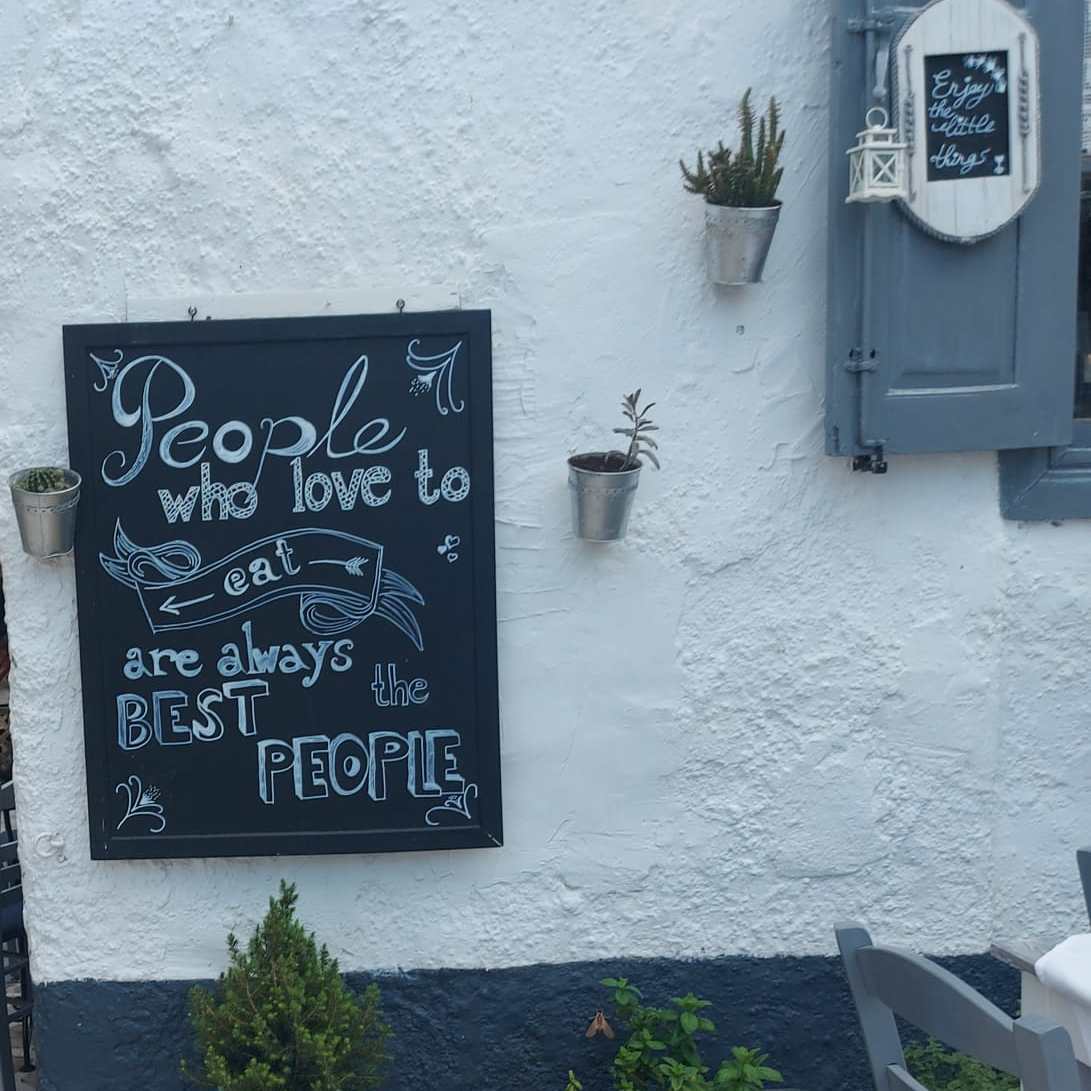 People
who love to
eat
are always
the
BEST
PEOPLE
Enjoy
the
little
things